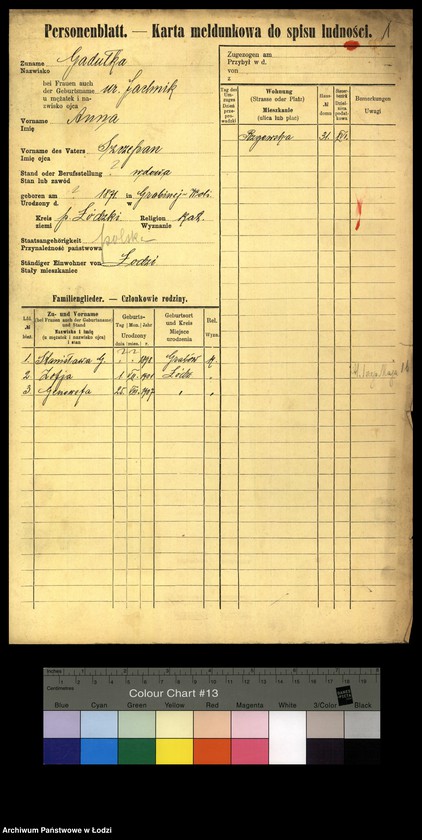 Personenblatt. — Karta meldunkowa do spisu ludności. 1
Zuname
Nazwisko
Gadułka
bei Frauen auch
der Geburtsname
u mężatek i na-
zwisko ojca
ur.
Vorname
Imię
Anna
Vorname des Vaters
Imię ojca
Szczepan
Stand oder Berufsstellung
Stan lub zawód
? wdowa
geboren am
Urodzony d.
? 1871 in
w
Kreis
ziemi
p. Łódzki
Religion
Wyznanie
kat.
Staatsangehörigkeit
Przynależność państwowa
polska
Ständiger Einwohner von
Stały mieszkaniec
Łodzi
Zugezogen am
Przybył w d.
von
z
Tag des
Um-
zuges
Dzień
prze-
pro-
wadzki
Wohnung
(Strasse oder Platz)
Mieszkanie
(ulica lub plac)
Haus-
№
domu
Haus-
bezirk
Dziel-
nica
domu
Bemerkungen
Uwagi
Rzgowska 31.
Familienglieder. — Członkowie rodziny.
Lfd.
№
bież.
Zu- und Vorname
(bei Frauen auch der Geburtsname)
und Stand
Nazwisko i imię
(u mężatek i nazwisko ojca)
i stan
Geburts-
Tag | Mon. | Jahr
Urodzony
dnia | mies. | r.
Geburtsort
und Kreis
Miejsce
urodzenia
Rel.
Wyzn.
1. Stanisława G. ? ? 1898 Grabów
2. Zofja 1 Łódź "
3. Genowefa 25. XII. 1907 " "
Inches
Centimetres
Colour Chart #13
Blue Cyan Green Yellow Red Magenta White 3/Color Black
Archiwum Państwowe w Łodzi